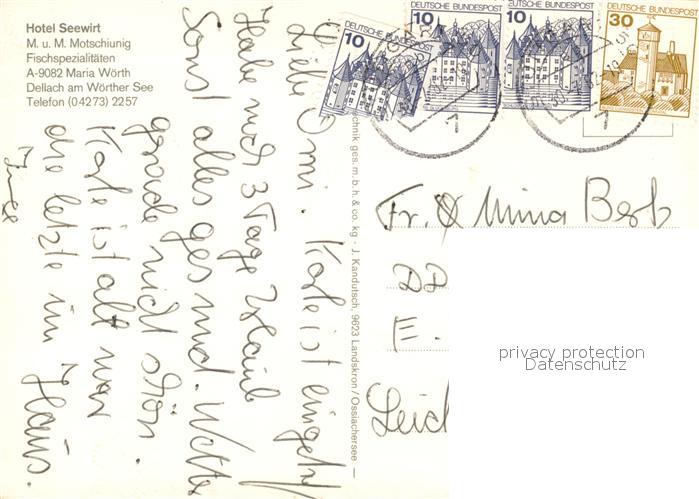 Hotel Seewirt
M. u. M. Motschiunig
Fischspezialitäten
A-9082 Maria Wörth
Dellach am Wörther See
Telefon (04273) 2257
DEUTSCHE BUNDESPOST
10
DEUTSCHE BUNDESPOST
10
DEUTSCHE BUNDESPOST
10
DEUTSCHE BUNDESPOST
30
Liebe Omi. Karte ist eingetr.
Habe noch 3 Tage Urlaub
Sonst alles gesund. Wetter
gerade nicht schön.
Karte ist alt war
die letzte im Haus.
technik ges. m. b. h. & co. kg · J. Kandutsch, 9623 Landskron / Ossiachersee —
Fr. Minna Beck
DD
E.
Leich
privacy protection
Datenschutz